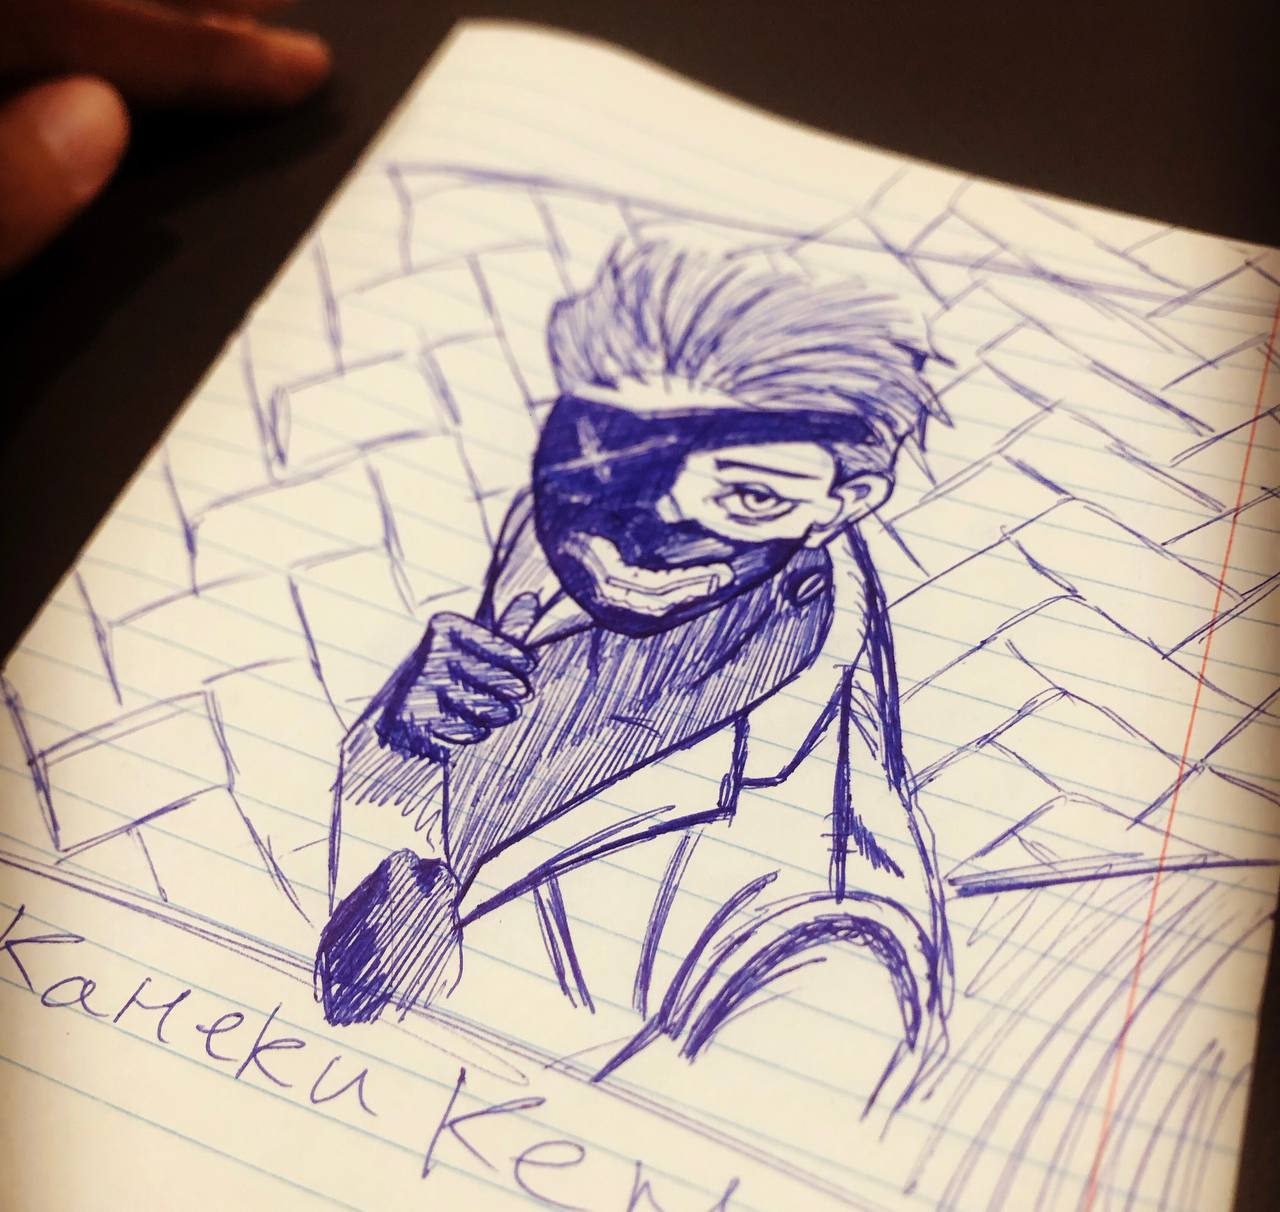 Канеки Кен